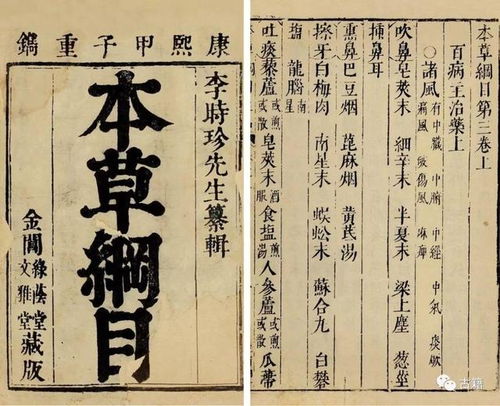 康熙甲子重鐫
李時珍先生纂輯
本草綱目
金閶
綠蔭堂
文雅堂
藏版
本草綱目第三卷上
百病主治藥上
○諸風 有中臟 中腑 中經 中氣 痰厥
痛風 破傷風 麻痺
吹鼻皂莢末 細辛末 半夏末 梁上塵 葱莖
插鼻耳
熏鼻巴豆烟 蓖麻烟 黃芪湯
擦牙白梅肉 南星末 蜈蚣末 蘇合丸 白礬
鹽 龍腦南星
吐痰藜蘆或煎或散 皂莢末酒服 食塩煎湯 人參蘆或煎或散 瓜蒂
古籍